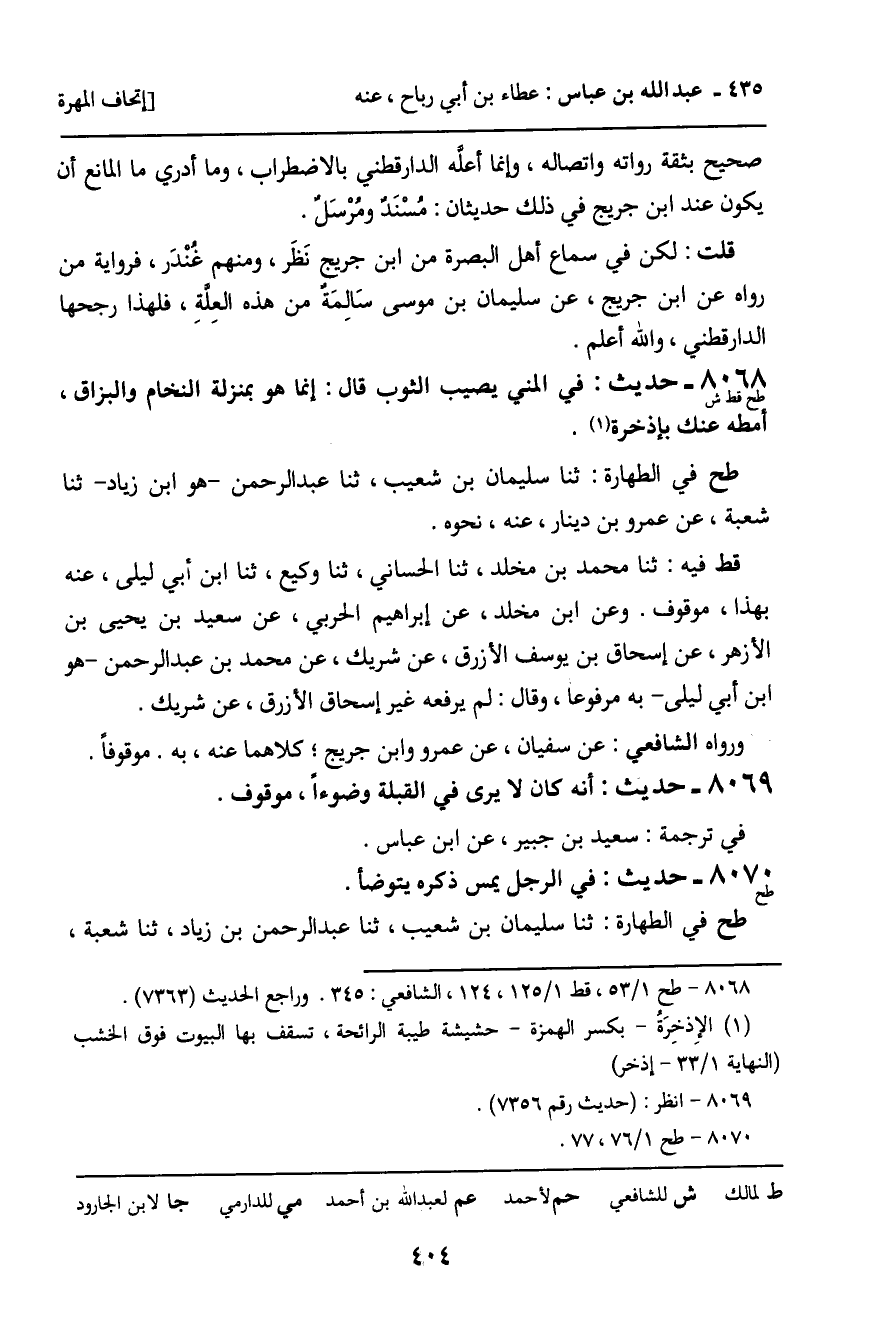 ٤٣٥ ـ عبدالله بن عباس : عطاء بن أبي رباح ، عنه [إتحاف المهرة
صحيح بثقة رواته واتصاله ، وإنما أعلَّه الدارقطني بالاضطراب ، وما أدري ما المانع أن
يكون عند ابن جريج في ذلك حديثان : مُسْنَدٌ ومُرْسَلٌ .
قلت : لكن في سماع أهل البصرة من ابن جريج نَظَر ، ومنهم غُنْدَر ، فرواية من
رواه عن ابن جريج ، عن سليمان بن موسى سَالِمَةٌ من هذه العِلَّةِ ، فلهذا رجحها
الدارقطني ، والله أعلم .
٨٠٦٨ ـ حديث : في المني يصيب الثوب قال : إنما هو بمنزلة النخام والبزاق ،
طح قط ش
أمطه عنك بإذخرة(١) .
طح في الطهارة : ثنا سليمان بن شعيب ، ثنا عبدالرحمن –هو ابن زياد– ثنا
شعبة ، عن عمرو بن دينار ، عنه ، نحوه .
قط فيه : ثنا محمد بن مخلد ، ثنا الحساني ، ثنا وكيع ، ثنا ابن أبي ليلى ، عنه
بهذا ، موقوف . وعن ابن مخلد ، عن إبراهيم الحربي ، عن سعيد بن يحيى بن
الأزهر ، عن إسحاق بن يوسف الأزرق ، عن شريك ، عن محمد بن عبدالرحمن –هو
ابن أبي ليلى– به مرفوعا ، وقال : لم يرفعه غير إسحاق الأزرق ، عن شريك .
ورواه الشافعي : عن سفيان ، عن عمرو وابن جريج ؛ كلاهما عنه ، به . موقوفاً .
٨٠٦٩ ـ حديث : أنه كان لا يرى في القبلة وضوءاً ، موقوف .
في ترجمة : سعيد بن جبير ، عن ابن عباس .
٨٠٧٠ ـ حديث : في الرجل يمس ذكره يتوضأ .
طح
طح في الطهارة : ثنا سليمان بن شعيب ، ثنا عبدالرحمن بن زياد ، ثنا شعبة ،
٨٠٦٨ – طح ٥٣/١ ، قط ١٢٥/١ ، ١٢٤ ، الشافعي : ٣٤٥ . وراجع الحديث (٧٣٦٣) .
(١) الإِذخِرَةُ – بكسر الهمزة – حشيشة طيبة الرائحة ، تسقف بها البيوت فوق الخشب
(النهاية ٣٣/١ – إذخر)
٨٠٦٩ – انظر : (حديث رقم ٧٣٥٦) .
٨٠٧٠ – طح ٧٦/١ ، ٧٧ .
ط لمالك ش للشافعي حم لأحمد عم لعبدالله بن أحمد مي للدارمي جا لابن الجارود
٤٠٤